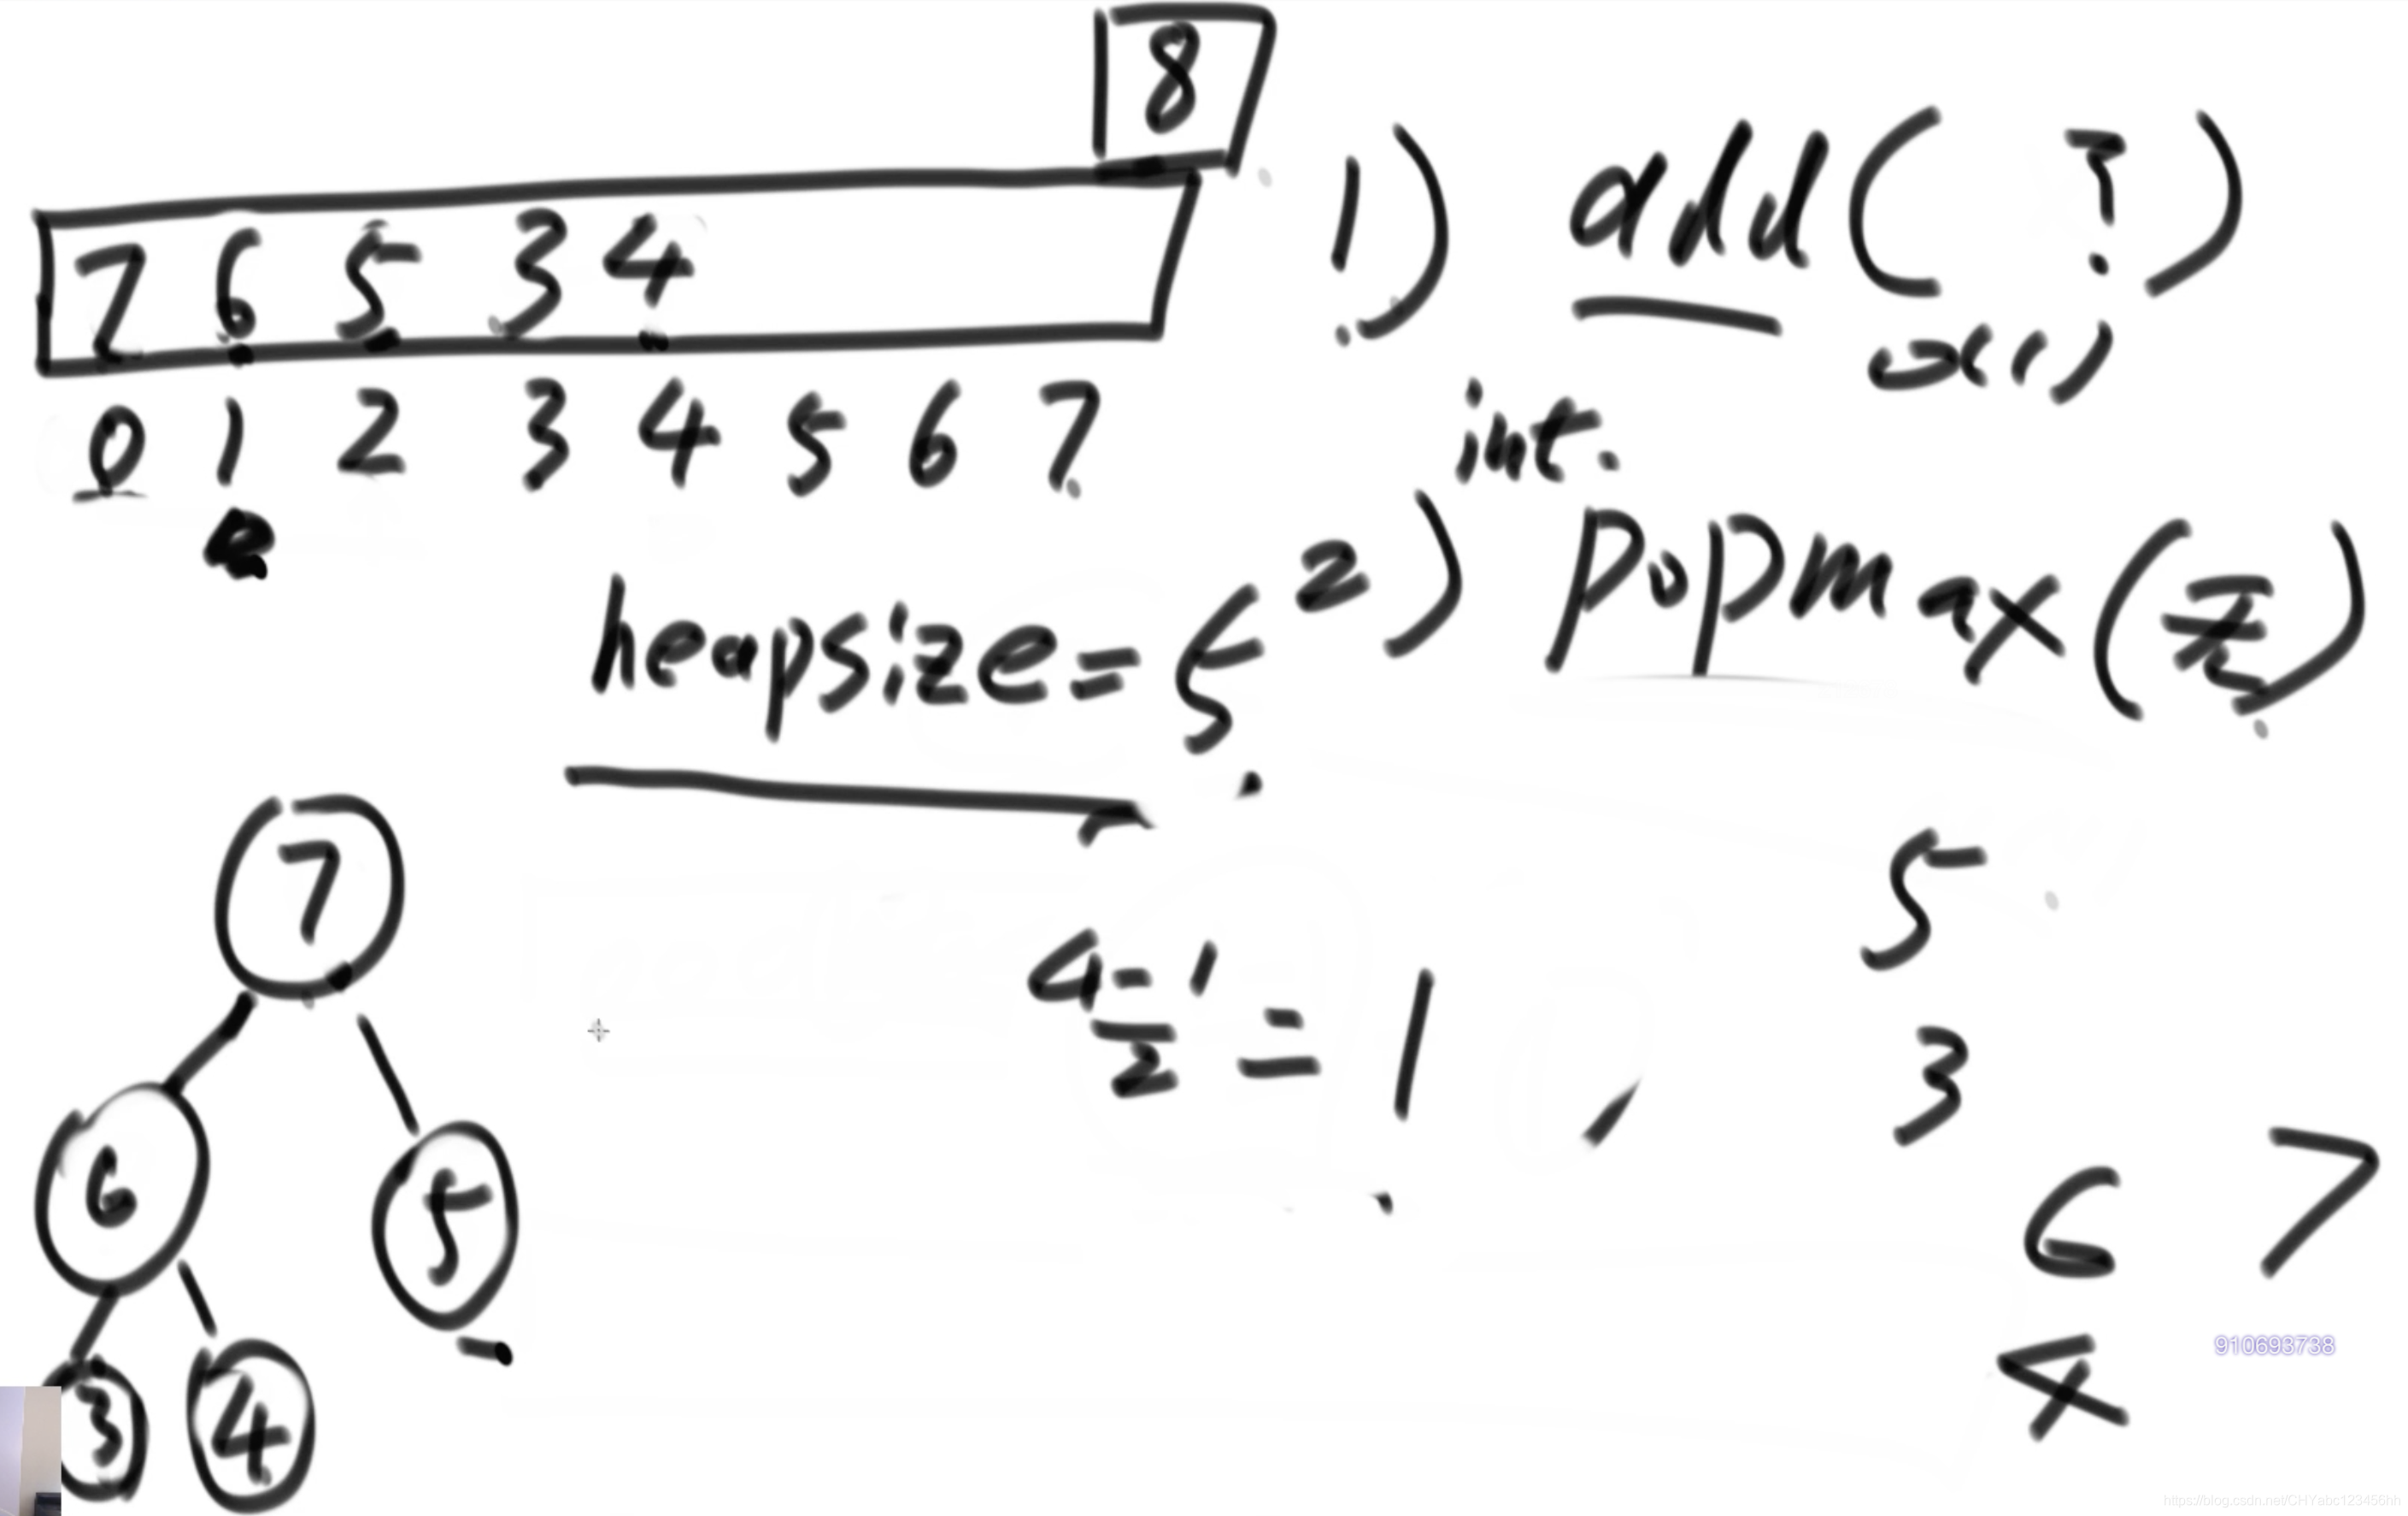 8
7 6 5 3 4
0 1 2 3 4 5 6 7
heapsize=5
1) add( ? )
int.
2) popmax( )
7
6 5
3 4
4-1
2
= 1
5
3
6 7
4
910693738
https://blog.csdn.net/CHYabc123456hh